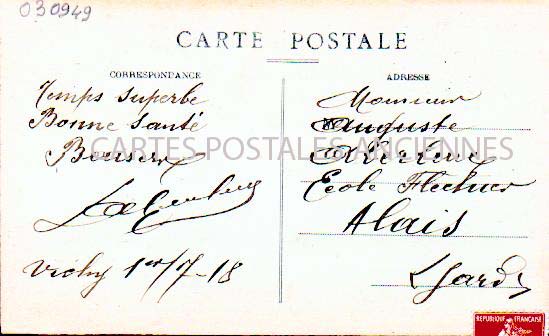 030949
CARTE POSTALE
CORRESPONDANCE
Temps superbe
Bonne santé
Baisers
Vichy 1er/7-18
ADRESSE
Monsieur
Auguste
Ecole Fléchier
Alais
Gard
CARTES POSTALES ANCIENNES
REPUBLIQUE FRANCAISE